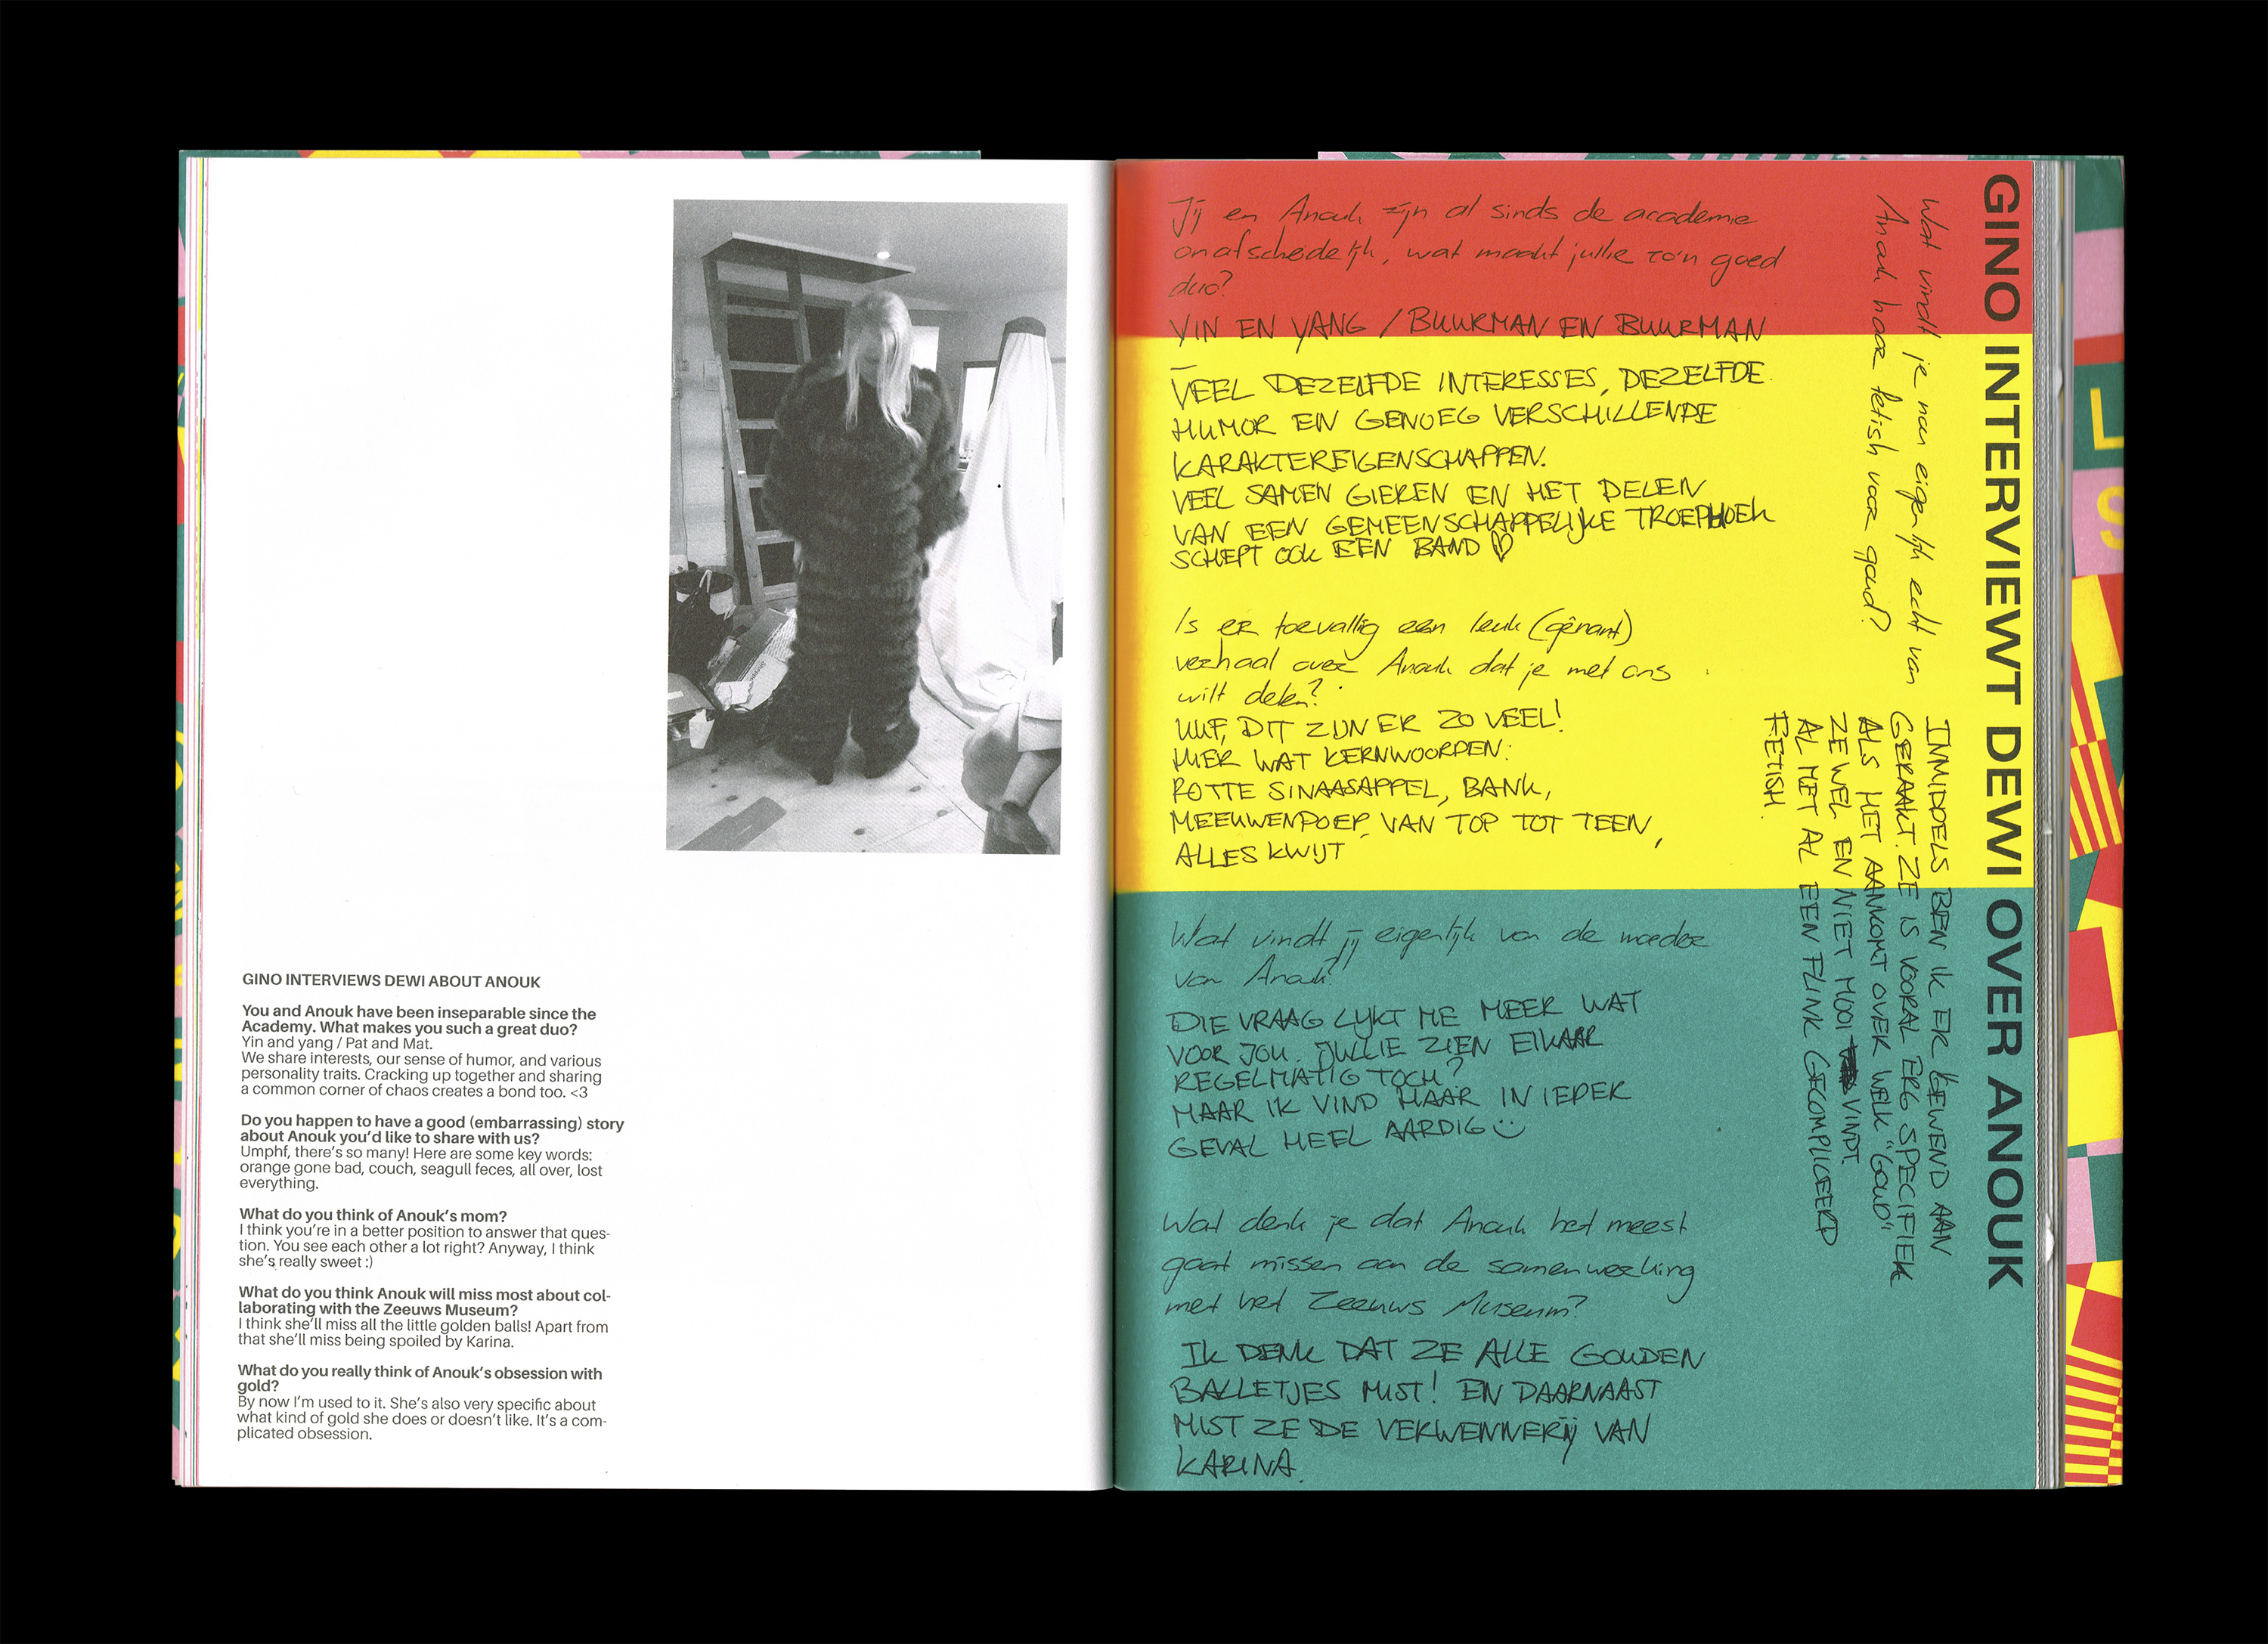 GINO INTERVIEWS DEWI ABOUT ANOUK
You and Anouk have been inseparable since the
Academy. What makes you such a great duo?
Yin and yang / Pat and Mat.
We share interests, our sense of humor, and various
personality traits. Cracking up together and sharing
a common corner of chaos creates a bond too. <3
Do you happen to have a good (embarrassing) story
about Anouk you'd like to share with us?
Umphf, there's so many! Here are some key words:
orange gone bad, couch, seagull feces, all over, lost
everything.
What do you think of Anouk's mom?
I think you're in a better position to answer that ques-
tion. You see each other a lot right? Anyway, I think
she's really sweet :)
What do you think Anouk will miss most about col-
laborating with the Zeeuws Museum?
I think she'll miss all the little golden balls! Apart from
that she'll miss being spoiled by Karina.
What do you really think of Anouk's obsession with
gold?
By now I'm used to it. She's also very specific about
what kind of gold she does or doesn't like. It's a com-
plicated obsession.
Jij en Anouk zijn al sinds de academie
onafscheidelijk, wat maakt jullie zo'n goed
duo?
YIN EN YANG / BUURMAN EN BUURMAN
VEEL DEZELFDE INTERESSES, DEZELFDE
HUMOR EN GENOEG VERSCHILLENDE
KARAKTEREIGENSCHAPPEN.
VEEL SAMEN GIEREN EN HET DELEN
VAN EEN GEMEENSCHAPPELIJKE TROEPHOEK
SCHEPT OOK EEN BAND ♡
Is er toevallig een leuk (gênant)
verhaal over Anouk dat je met ons
wilt delen?
UUF, DIT ZIJN ER ZO VEEL!
HIER WAT KERNWOORDEN:
ROTTE SINAASAPPEL, BANK,
MEEUWENPOEP, VAN TOP TOT TEEN,
ALLES KWIJT
Wat vindt jij eigenlijk van de moeder
van Anouk?
DIE VRAAG LIJKT ME MEER WAT
VOOR JOU. JULLIE ZIEN ELKAAR
REGELMATIG TOCH?
MAAR IK VIND HAAR IN IEDER
GEVAL HEEL AARDIG :)
Wat denk je dat Anouk het meest
gaat missen aan de samenwerking
met het Zeeuws Museum?
IK DENK DAT ZE ALLE GOUDEN
BALLETJES MIST! EN DAARNAAST
MIST ZE DE VERWENNERIJ VAN
KARINA.
GINO INTERVIEWT DEWI OVER ANOUK
Wat vindt je nou eigenlijk echt van
Anouk haar fetish voor goud?
INMIDDELS BEN IK ER GEWEND AAN
GERAAKT. ZE IS VOORAL ERG SPECIFIEK
ALS HET AANKOMT OVER WELK "GOUD"
ZE WEL EN NIET MOOI VINDT.
AL MET AL EEN FLINK GECOMPLICEERD
FETISH.
L
S